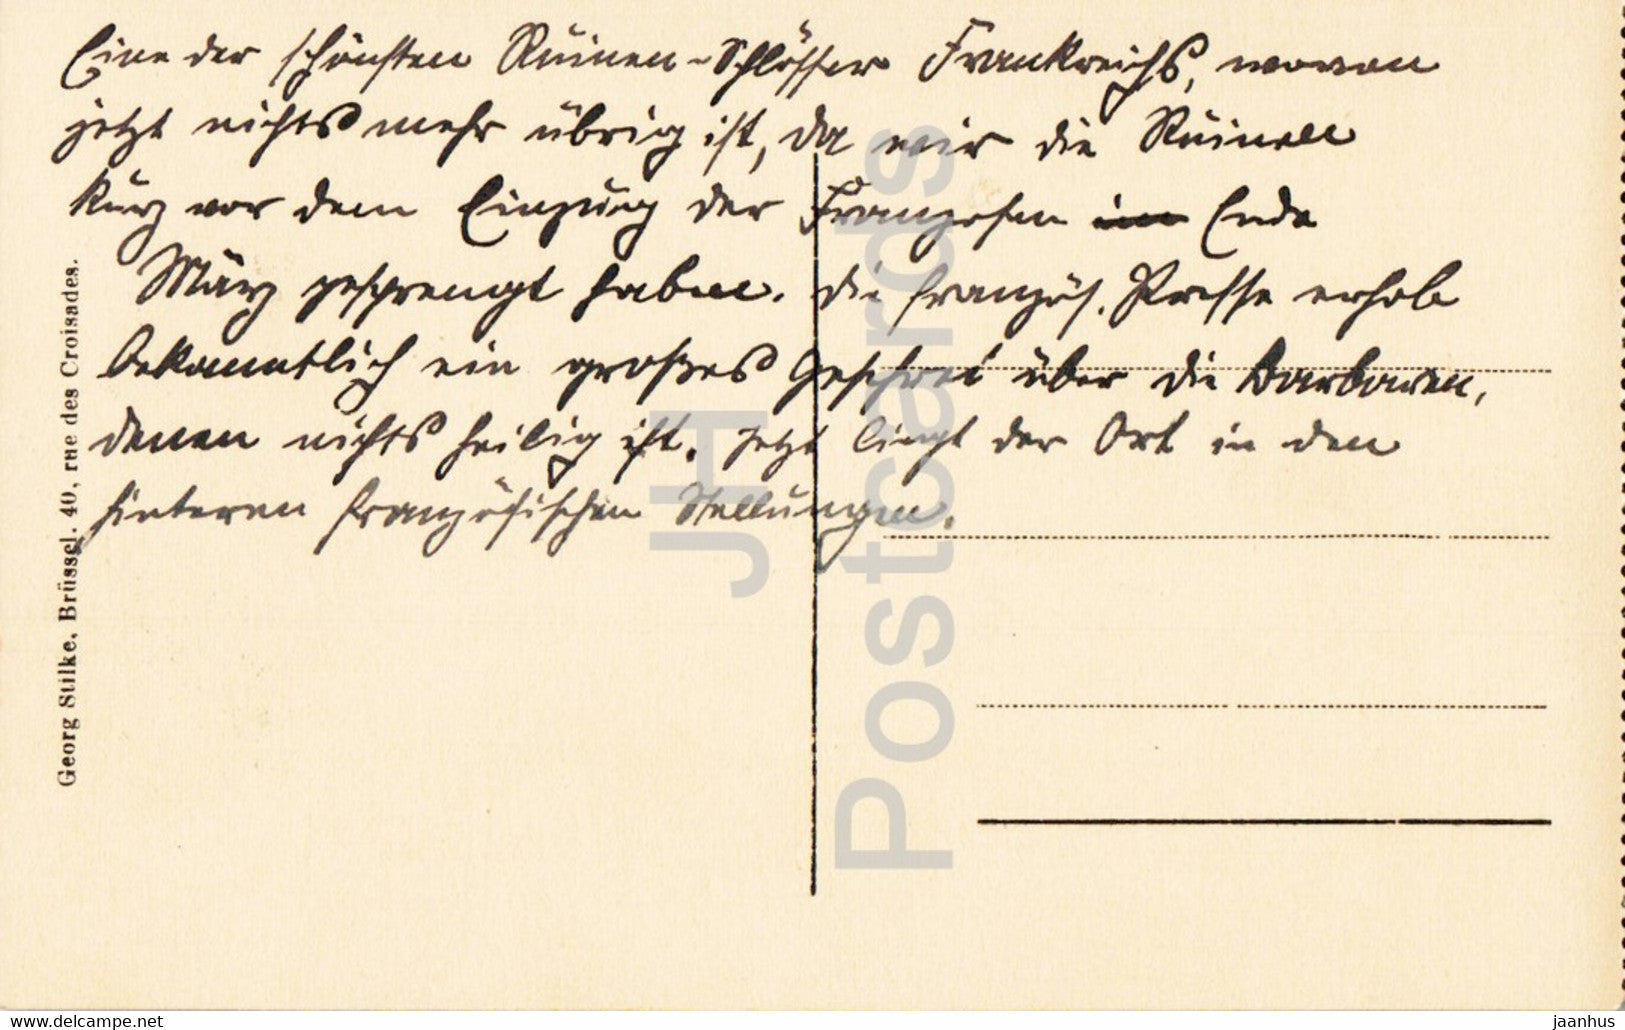 Eine der schönsten Ruinen-Schlösser Frankreichs, wovon
jetzt nichts mehr übrig ist, da wir die Ruinen
kurz vor dem Einzug der Franzosen im Ende
März gesprengt haben. Die französ. Presse erhob
bekanntlich ein großes Geschrei über die Barbaren,
denen nichts heilig ist. Jetzt liegt der Ort in den
hinteren französischen Stellungen.
Georg Stilke, Brüssel. 40, rue des Croisades.
JH
Postcards
www.delcampe.net
jaanhus